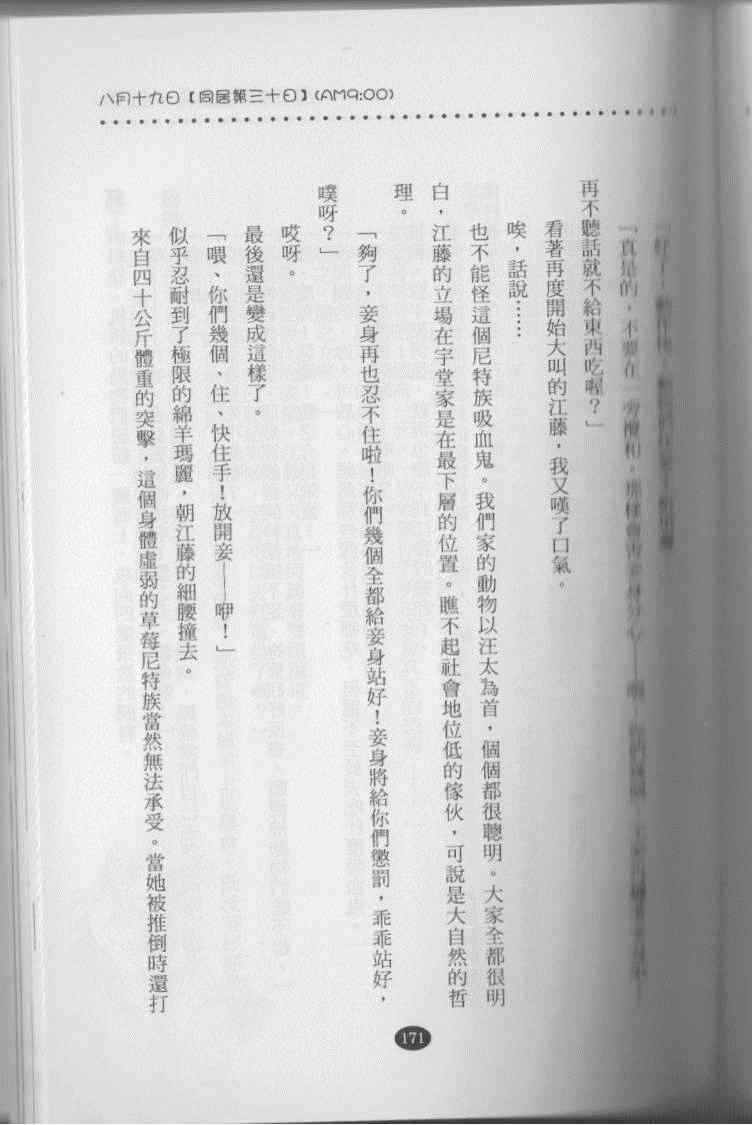 八月十九日【同居第三十日】(AM9:00)
「真是的，不要在一旁攪和。
再不聽話就不給東西吃喔？」
看著再度開始大叫的江藤，我又嘆了口氣。
唉，話說……
也不能怪這個尼特族吸血鬼。我們家的動物以汪太為首，個個都很聰明。大家全都很明
白，江藤的立場在宇堂家是在最下層的位置。瞧不起社會地位低的傢伙，可說是大自然的哲
理。
「夠了，妾身再也忍不住啦！你們幾個全都給妾身站好！妾身將給你們懲罰，乖乖站好，
噗呀？」
哎呀。
最後還是變成這樣了。
「喂、你們幾個、住、快住手！放開妾——咿！」
似乎忍耐到了極限的綿羊瑪麗，朝江藤的細腰撞去。
來自四十公斤體重的突擊，這個身體虛弱的草莓尼特族當然無法承受。當她被推倒時還打
171